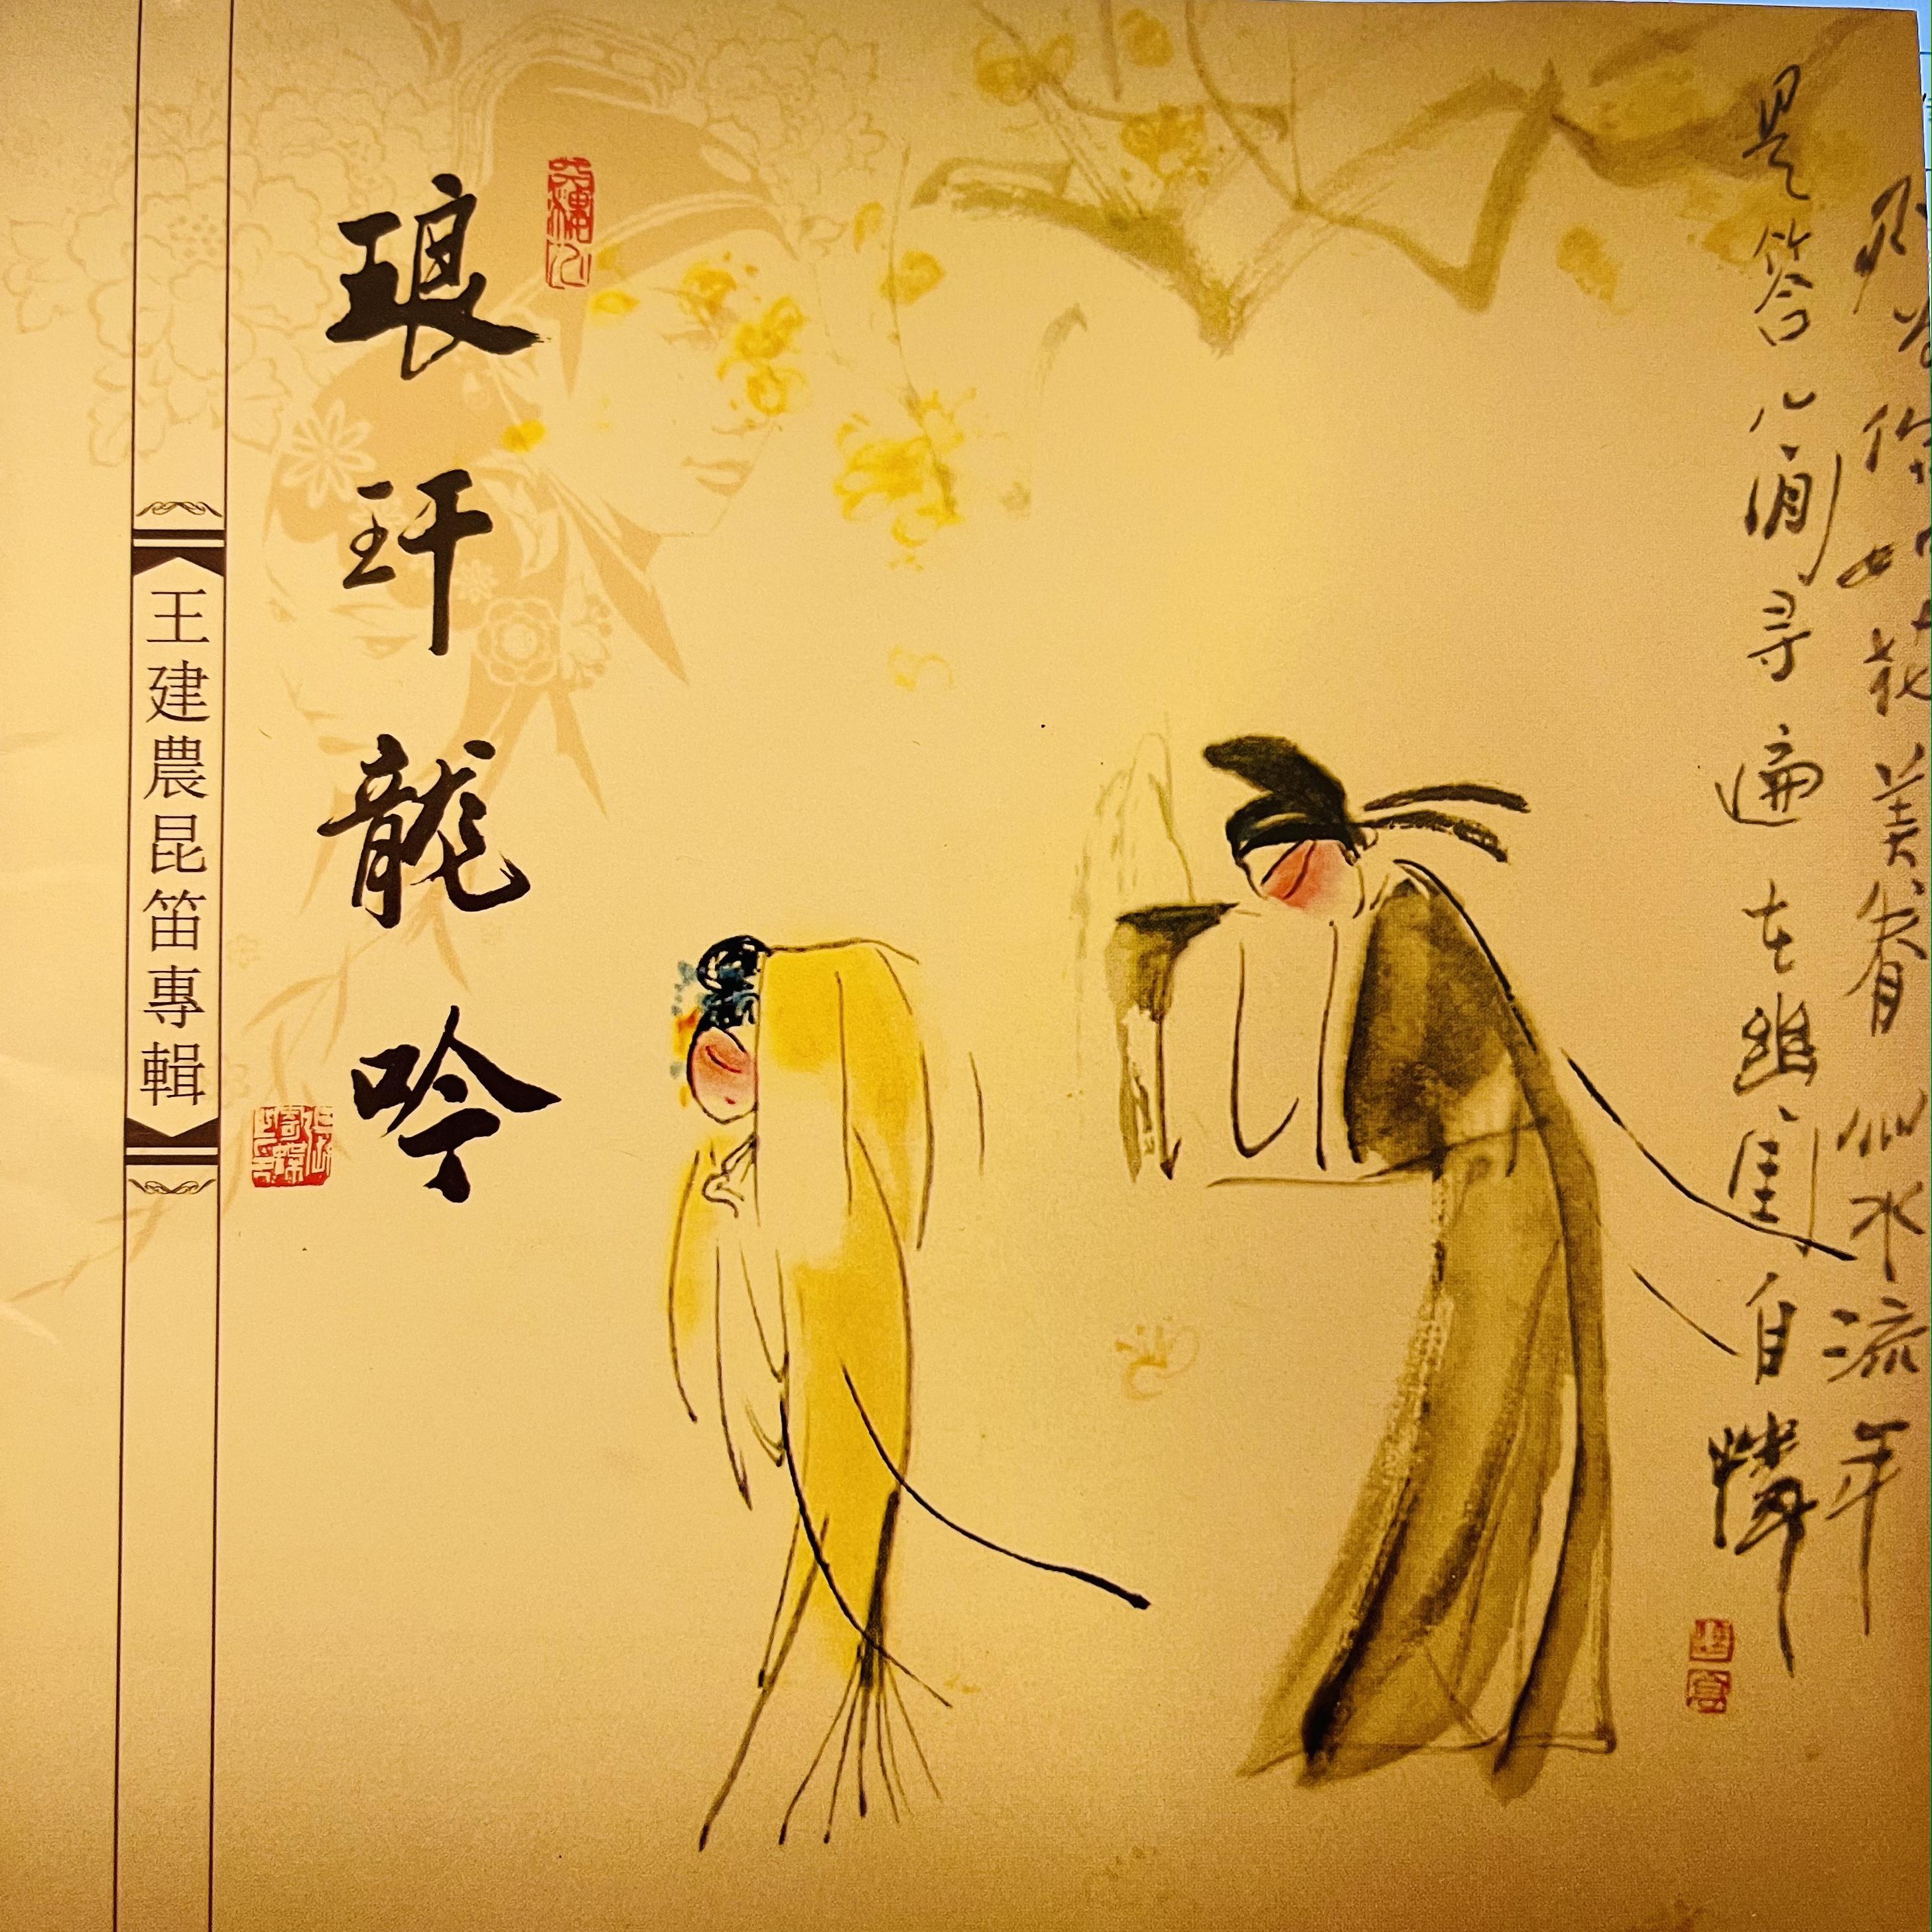 则为你如花美眷似水流年
是答儿闲寻遍在幽闺自憐
琅玕龍吟
王建農昆笛專輯